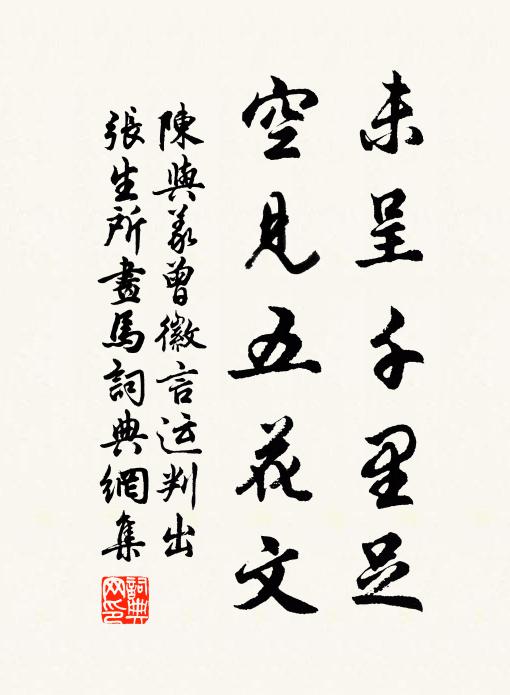 未呈千里足
空見五花文
陳與義曾徽言运判出
張生所畫馬詞典網集
詞典
网印